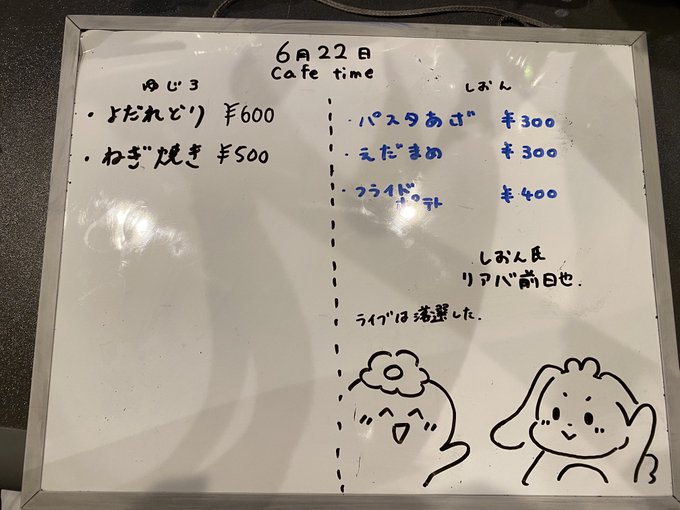 6月22日
Cafe time
ゆじ3
・よだれどり ¥600
・ねぎ焼き ¥500
しおん
・パスタあげ ¥300
・えだまめ ¥300
・フライド
ポテト ¥400
しおん氏
リアバ前日也.
ライブは落選した.